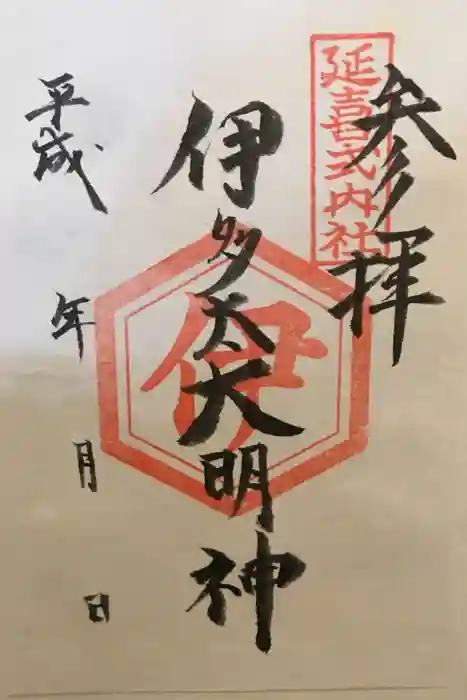 延喜式内社
参拝
伊
伊多太大明神
平成 年 月 日